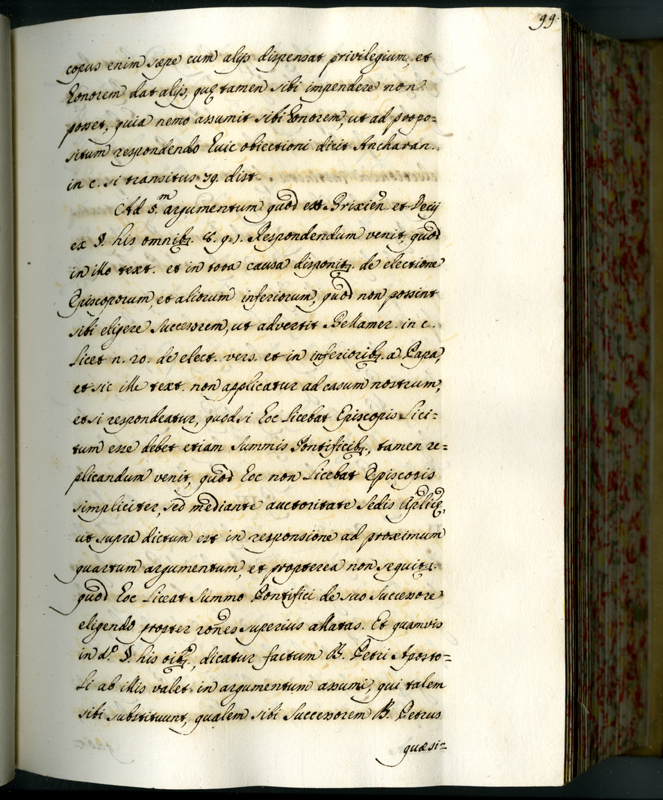 99.
copus enim sæpe cum alijs dispensat privilegium, et
honorem dat alijs, quę tamen sibi impendere non
posset, quia nemo assumit sibi honorem, ut ad propo=
situm respondendo huic obiectioni dicit Ancharan.
in c. si transitus 79. dist.
Ad 5.m argumentum quod est Brixien. et Decij
ex §. his omnib. 8. q. 1. Respondendum venit, quod
in illo text. et in tota causa disponit. de electione
Episcoporum, et aliorum inferiorum, quod non possint
sibi eligere successorem, ut advertit Bellamer. in c.
licet n. 20. de elect. vers. et in inferiorib. a Papa,
et sic ille text. non applicatur ad casum nostrum,
et si respondeatur, quod si hoc licebat Episcopis lici=
tum esse debet etiam Summis Pontificib., tamen re=
plicandum venit, quod hoc non licebat Episcopis
simpliciter, sed mediante auctoritate Sedis Aplicę,
ut supra dictum est in responsione ad proximum
quartum argumentum, et propterea non sequit.
quod hoc liceat Summo Pontifici de suo successore
eligendo propter rones superius allatas. Et quamvis
in d.o §. his oib., dicatur factum B. Petri Aposto=
li ab illis valet. in argumentum assumi, qui talem
sibi substituunt, qualem sibi successorem B. Petrus
quæsi=